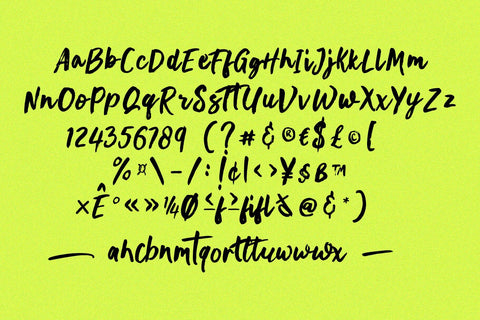 AaBbCcDdEeFfGgHhIiJjKkLlMm
NnOoPpQqRrSsTtUuVvWwXxYyZz
1243561789 (?#&®€$£©[
%¤\-/:!¢|<>¥$B™
×Ê°«»¼Ø≤ƒ≥fiflð@&*)
ahcbnmTqorttluwwwx